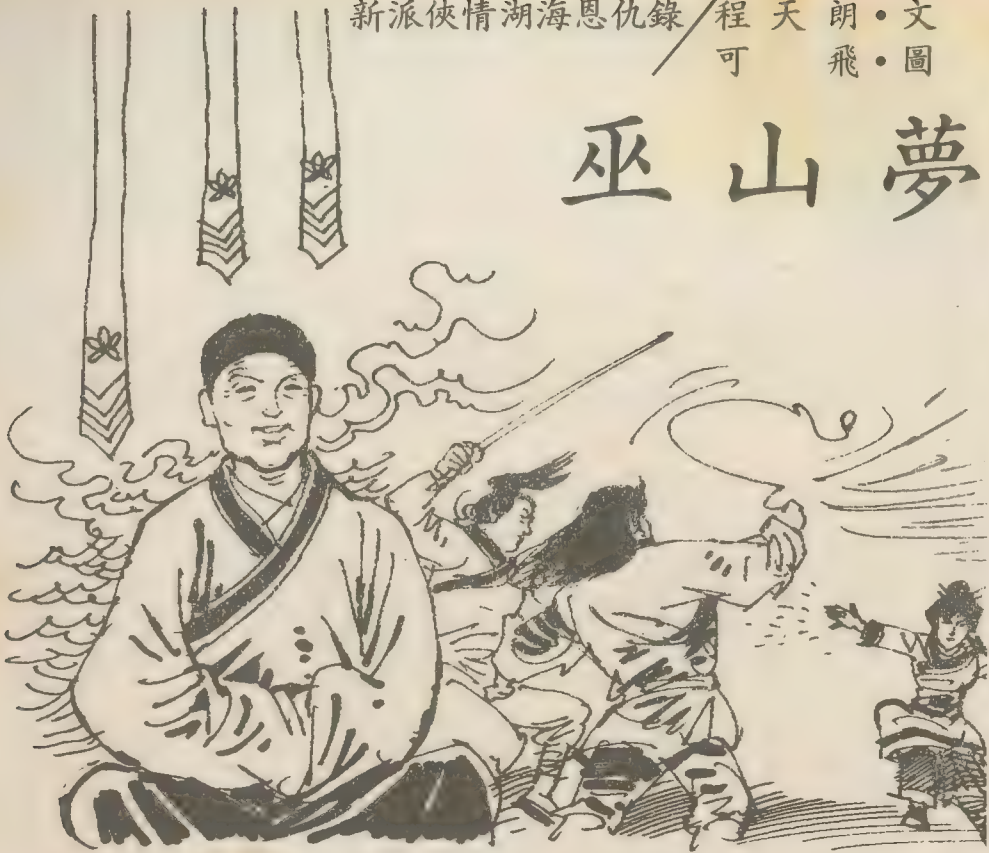 新派俠情湖海恩仇錄/程天朗•文
可飛•圖
巫山夢